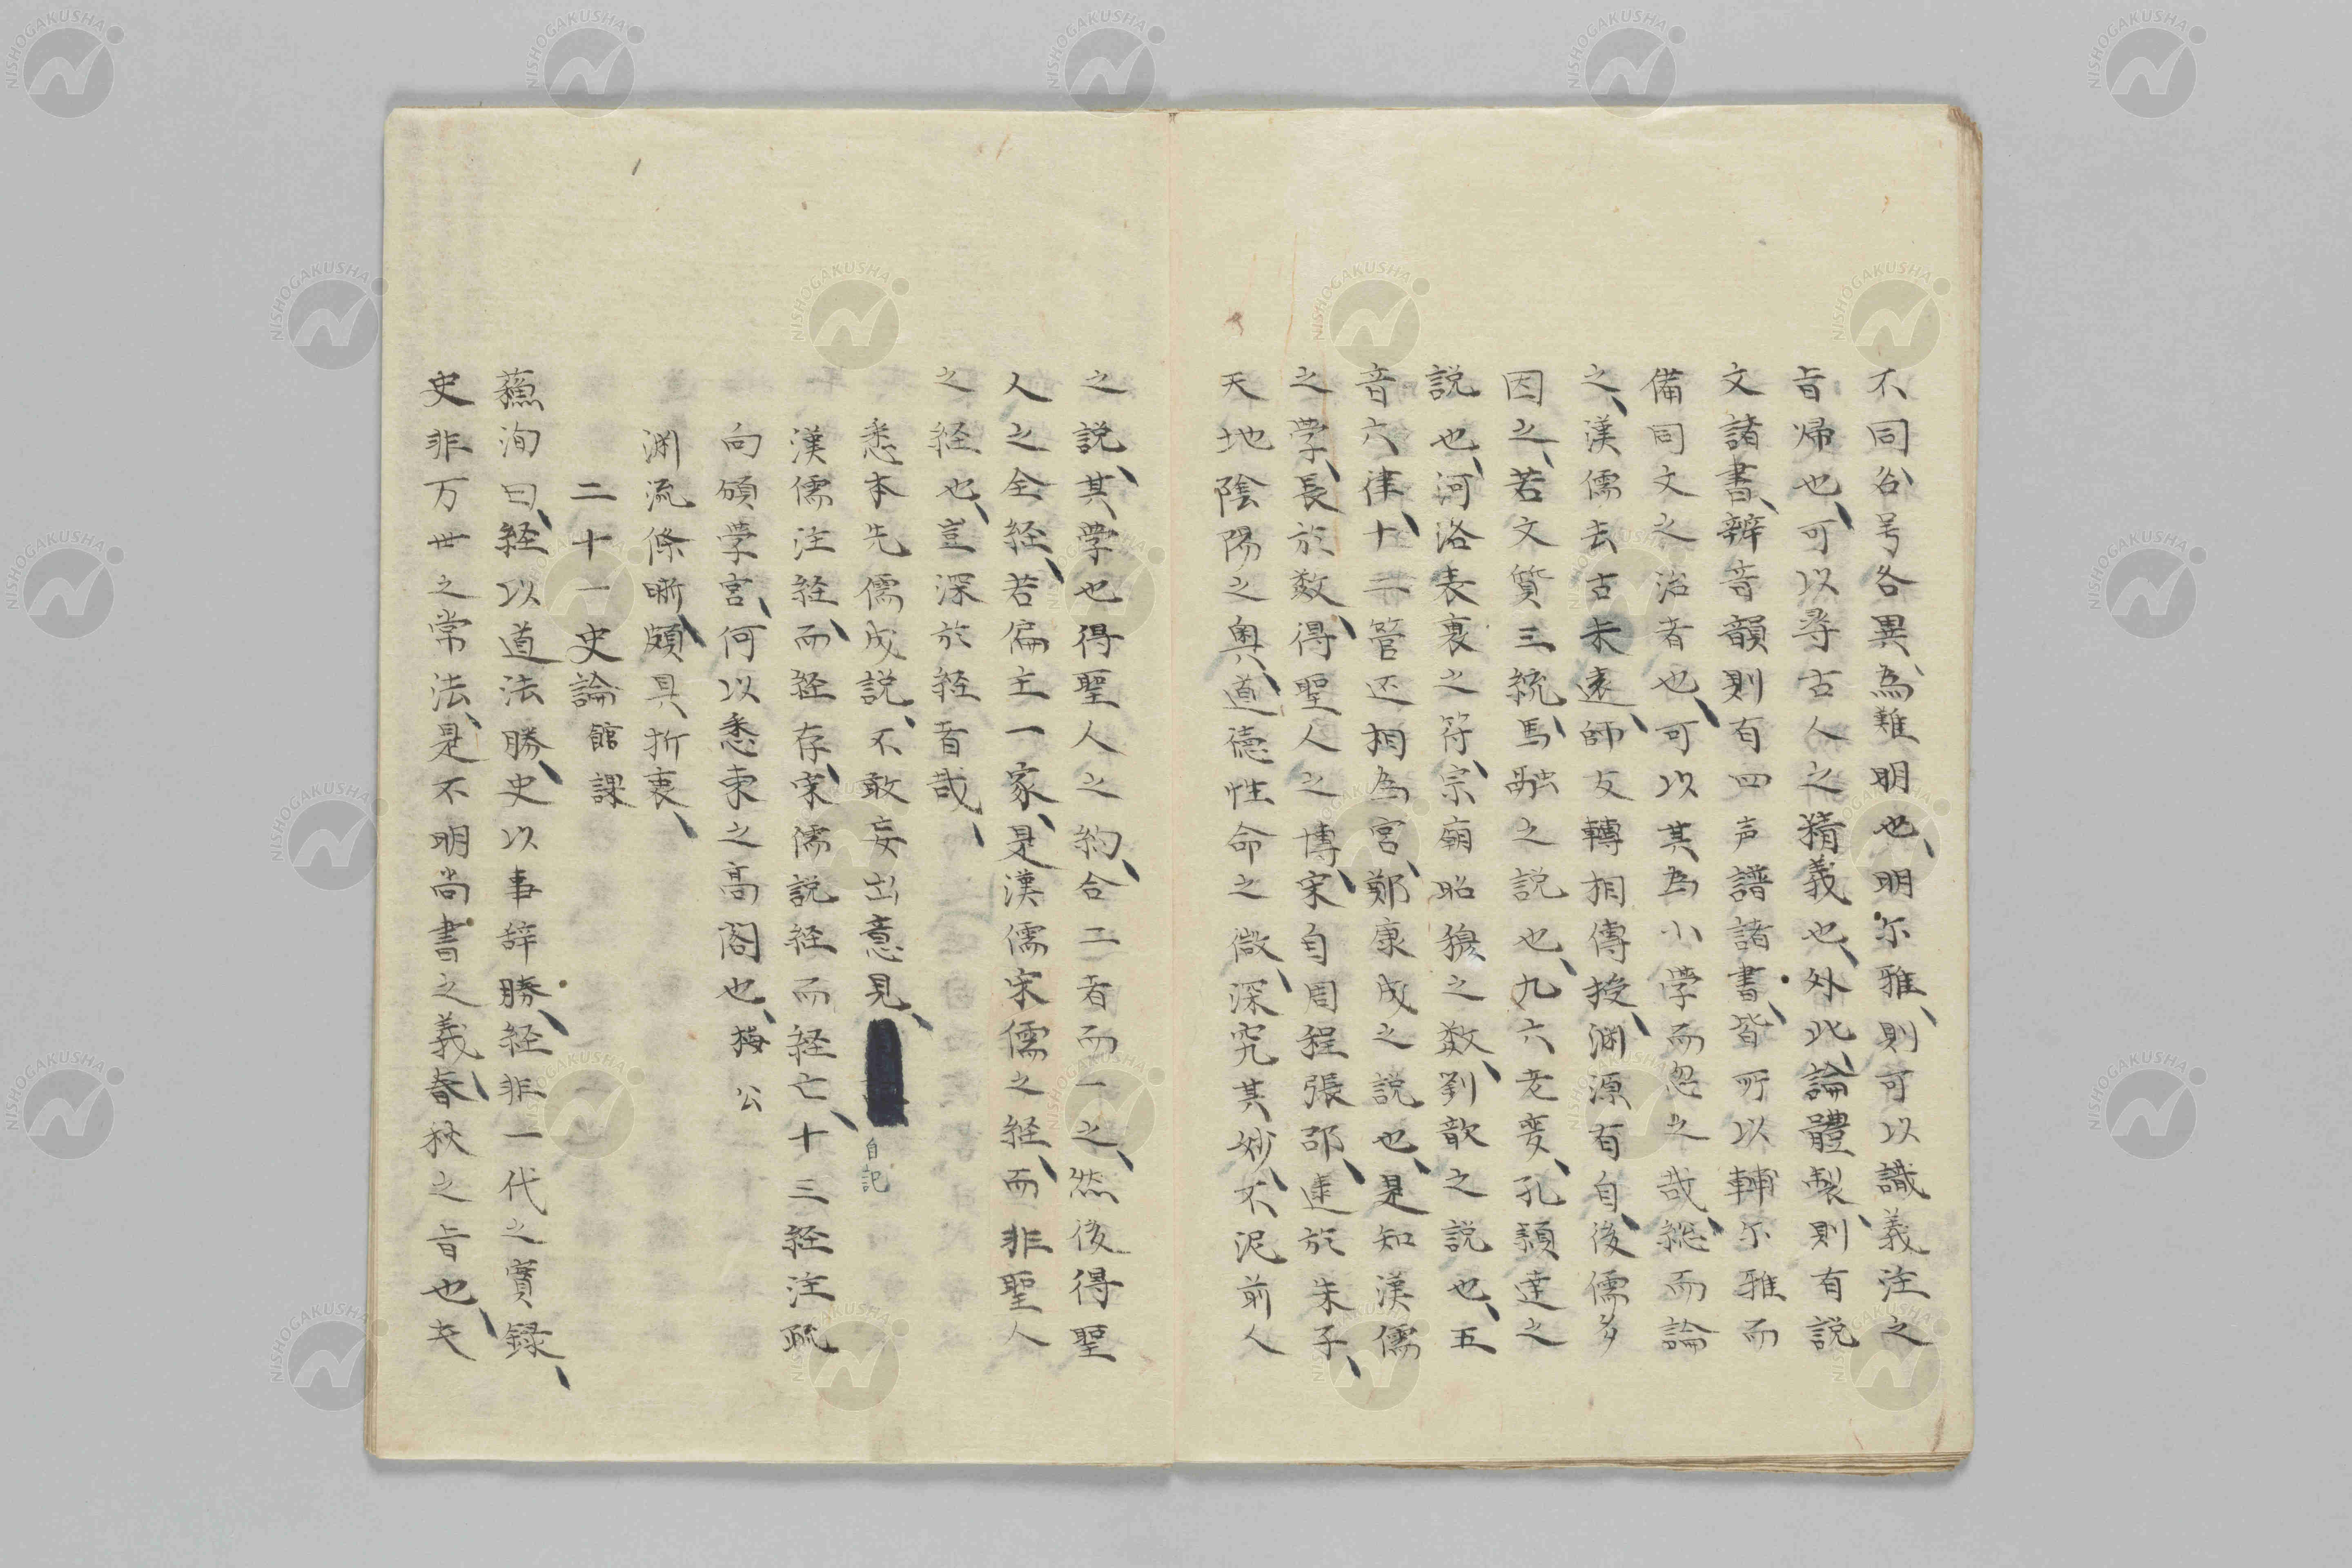 不同谷号各異、為難明也、明尓雅、則可以識義注之
旨帰也、可以尋古人之精義也、外此、論體製則有説
文諸書、辨音韻則有四声譜諸書、皆所以輔尓雅而
備同文之治者也、可以其為小学而忽之哉、総而論
之、漢儒去古未遠、師友轉相傳授、渊源有自、後儒多
因之、若文質三統、馬融之説也、九六老変、孔穎達之
説也、河洛表裏之符、宗廟昭穆之数、劉歆之説也、五
音六律、十二管还相為宮、鄭康成之説也、是知漢儒
之学、長於数、得聖人之博、宋自周程張邵、逹於朱子、
天地陰陽之奥、道徳性命之微、深究其妙、不泥前人
之説、其学也得聖人之約、合二者而一之、然後得聖
人之全経、若偏主一家、是漢儒宋儒之経、而非聖人
之経也、豈深於経者哉、
悉本先儒成説、不敢妄出意見、
自記
漢儒注経、而経存、宋儒説経而経亡、十三経注疏
向頒学宮、何以悉束之高閣也、梅公
渊流條晰、頗具折衷、
二十一史論 館課
蘓洵曰、経以道法勝、史以事辞勝、経非一代之實録、
史非万世之常法、是不明尚書之義、春秋之旨也、夫
NISHOGAKUSHA